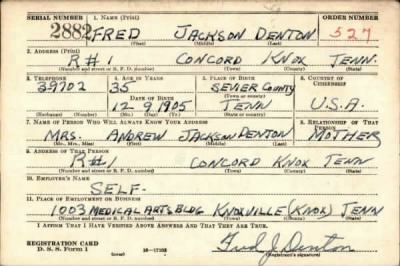 SERIAL NUMBER 1. NAME (Print) ORDER NUMBER
2882 FRED JACKSON DENTON 527
(First) (Middle) (Last)
2. ADDRESS (Print)
R#1 CONCORD KNOX TENN.
(Number and street or R. F. D. number) (Town) (County) (State)
3. TELEPHONE 4. AGE IN YEARS 5. PLACE OF BIRTH 6. COUNTRY OF CITIZENSHIP
39702 35 SEVIER COUNTY
DATE OF BIRTH (Town or county)
12-9-1905 TENN U.S.A.
(Exchange) (Number) (Mo.) (Day) (Yr.) (State or country)
7. NAME OF PERSON WHO WILL ALWAYS KNOW YOUR ADDRESS 8. RELATIONSHIP OF THAT PERSON
MRS. ANDREW JACKSON DENTON MOTHER
(Mr., Mrs., Miss) (First) (Middle) (Last)
9. ADDRESS OF THAT PERSON
R#1 CONCORD KNOX TENN
(Number and street or R. F. D. number) (Town) (County) (State)
10. EMPLOYER'S NAME
SELF-
11. PLACE OF EMPLOYMENT OR BUSINESS
1003 MEDICAL ARTS BLDG KNOXVILLE (KNOX) TENN
(Number and street or R. F. D. number) (Town) (County) (State)
I AFFIRM THAT I HAVE VERIFIED ABOVE ANSWERS AND THAT THEY ARE TRUE.
REGISTRATION CARD
D. S. S. Form 1 (over) 16-17105 Fred J. Denton
(Registrant's signature)